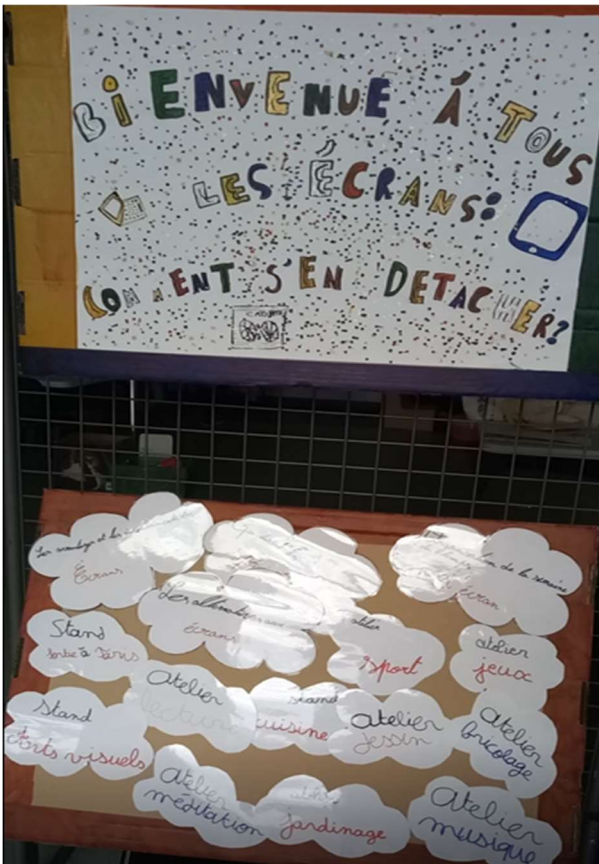 BIENVENUE Á TOUS
LES ÉCRANS:
COMMENT S'EN DETACHER?
Les avantages et les
Écrans
de la semaine
écran
Les alternatives aux
écrans
Stand
sortie à Paris
atelier
sport
atelier
jeux
Atelier
lecture
stand
cuisine
Atelier
dessin
Atelier
bricolage
Stand
Arts visuels
Atelier
méditation
jardinage
Atelier
musique